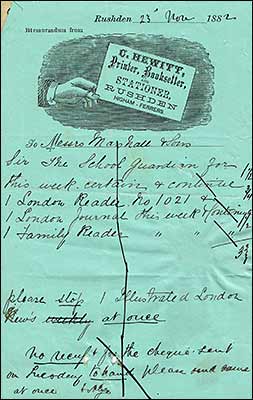 Rushden 23 Nov 1882
Memorandum from
C. HEWITT,
Printer, Bookseller,
AND
STATIONER,
RUSHDEN
HIGHAM-FERRERS
To Messrs Marshall & Sons
Sir The School Guardian for
this week certain & continue
1 London Reader No 1021 &
1 London Journal this week & continue
1 Family Reader " " "
please stop 1 Illustrated London
News weekly at once
No receipt for the cheque sent
on to hand please send same
at once